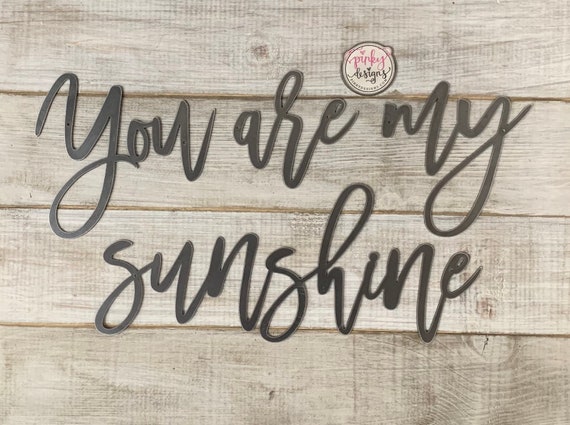 pinky
designs
You are my
sunshine